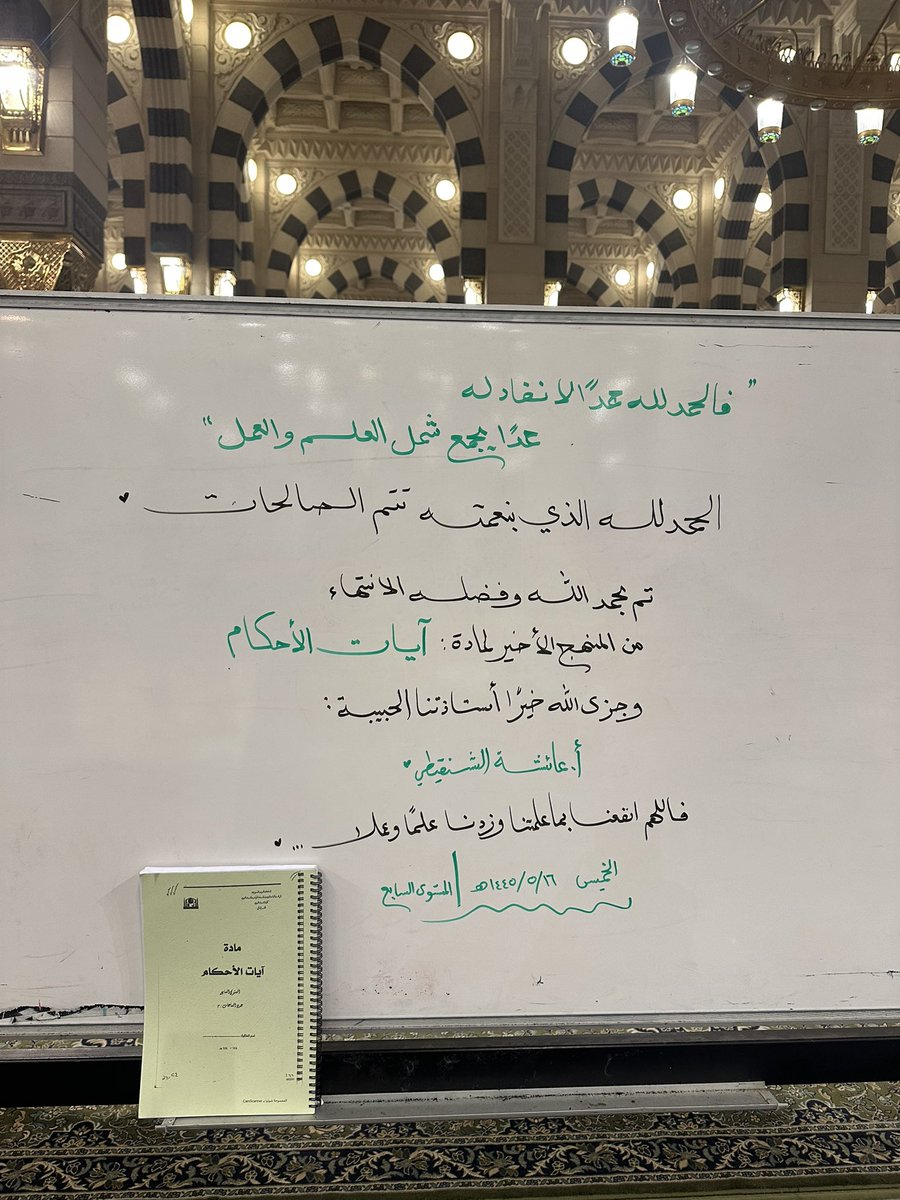 "فالحمد لله حمدًا لا نفاد له
حمدًا يجمع شمل العلم والعمل"
الحمد لله الذي بنعمته تتم الصالحات
تم بحمد الله وفضله الانتهاء
من المنهج الأخير لمادة: آيات الأحكام
وجزى الله خيرًا أستاذتنا الحبيبة:
أ. عائشة الشنقيطي
فاللهم انفعنا بما علمتنا وزدنا علمًا وعملا ...
الخميس ١٤٤٥/٥/١٦هـ | المستوى السابع
مادة
آيات الأحكام
CamScanner